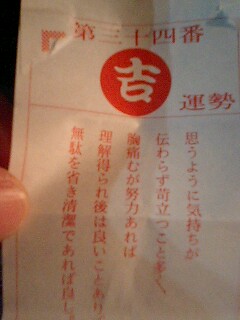 第三十四番
吉
運勢
思うように気持ちが
伝わらず苛立つこと多く、
胸痛むが努力あれば
理解得られ後は良いことあり。
無駄を省き清潔であれば良し。